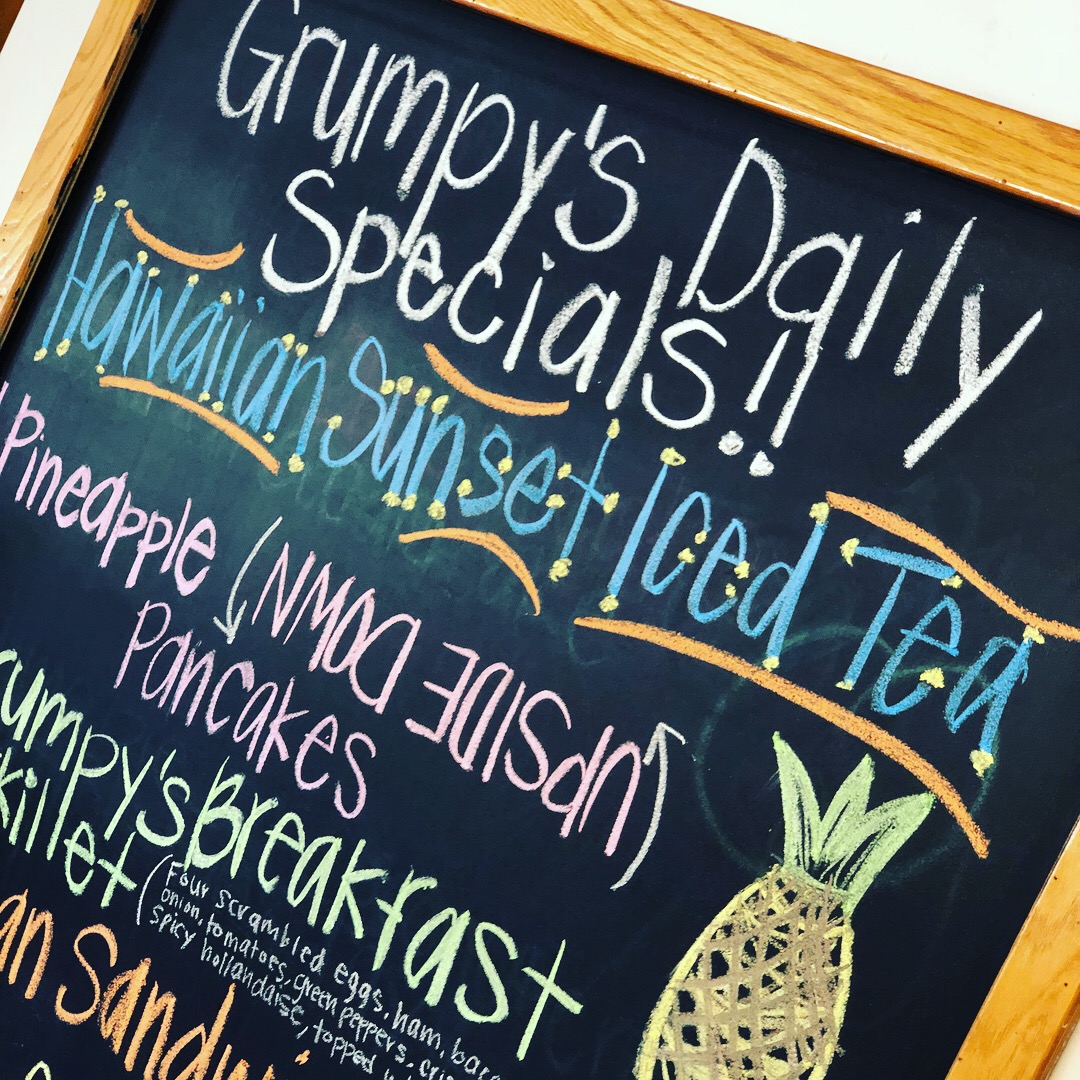 Grumpy's Daily
Specials!!
Hawaiian Sunset Iced Tea
Pineapple (UPSIDE DOWN)
Pancakes
umpy's Breakfast
killet (Four scrambled eggs, ham,
onion, tomatoes, green peppers,
spicy hollandaise, topped
an